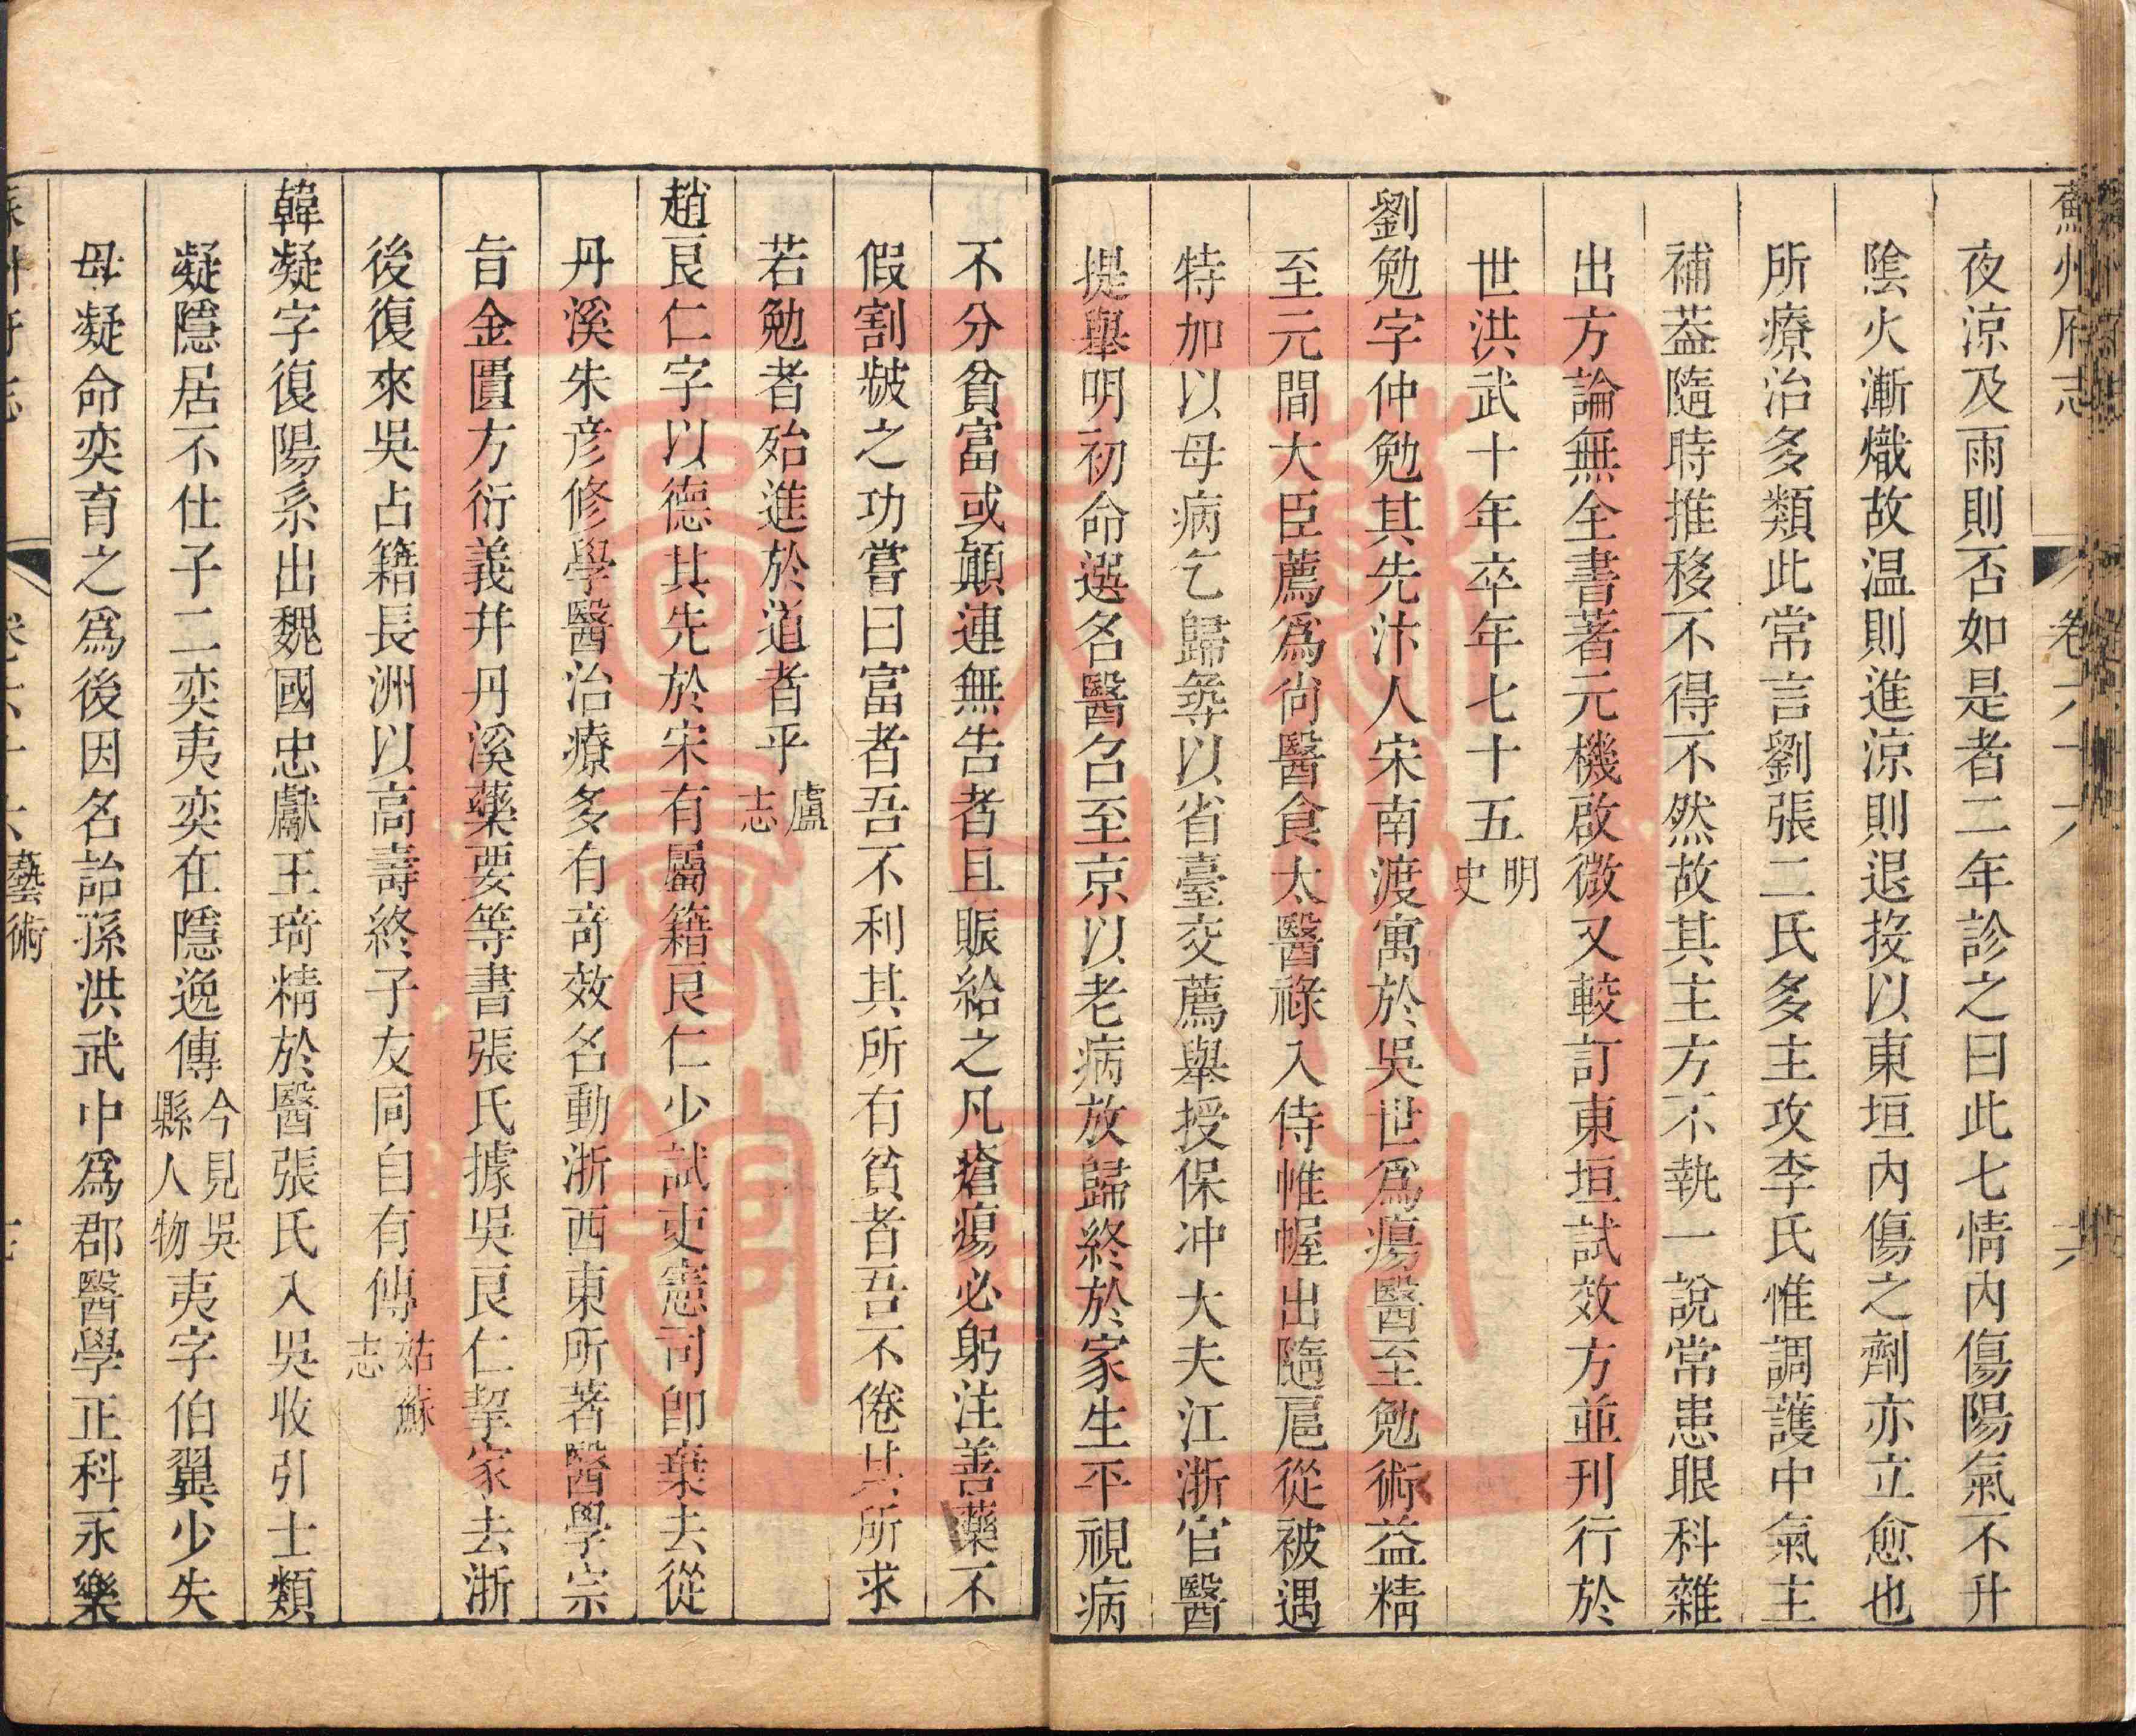 蘇州府志 卷六十六 六
夜涼及雨則否如是者二年診之曰此七情內傷陽氣不升
陰火漸熾故温則進涼則退投以東垣內傷之劑亦立愈也
所療治多類此常言劉張二氏多主攻李氏惟調護中氣主
補葢隨時推移不得不然故其主方不執一說常患眼科雜
出方論無全書著元機啟微又較訂東垣試效方並刊行於
世洪武十年卒年七十五明史
劉勉字仲勉其先汴人宋南渡寓於吳世爲瘍醫至勉術益精
至元間大臣薦爲尚醫食太醫祿入侍帷幄出隨扈從被遇
特加以母病乞歸尋以省臺交薦舉授保冲大夫江浙官醫
提舉明初命選名醫召至京以老病放歸終於家生平視病
不分貧富或顛連無告者且賑給之凡瘡瘍必躬注善藥不
假割皸之功嘗曰富者吾不利其所有貧者吾不倦其所求
若勉者殆進於道者乎盧志
趙良仁字以德其先於宋有屬籍良仁少試吏憲司即棄去從
丹溪朱彦修學醫治療多有奇效名動浙西東所著醫學宗
旨金匱方衍義并丹溪藥要等書張氏據吳良仁挈家去浙
後復來吳占籍長洲以高壽終子友同自有傳姑蘇志
韓凝字復陽系出魏國忠獻王琦精於醫張氏入吳收引士類
凝隱居不仕子二奕夷奕在隱逸傳今見吳縣人物夷字伯翼少失
母凝命奕育之爲後因名詒孫洪武中爲郡醫學正科永樂
藝術